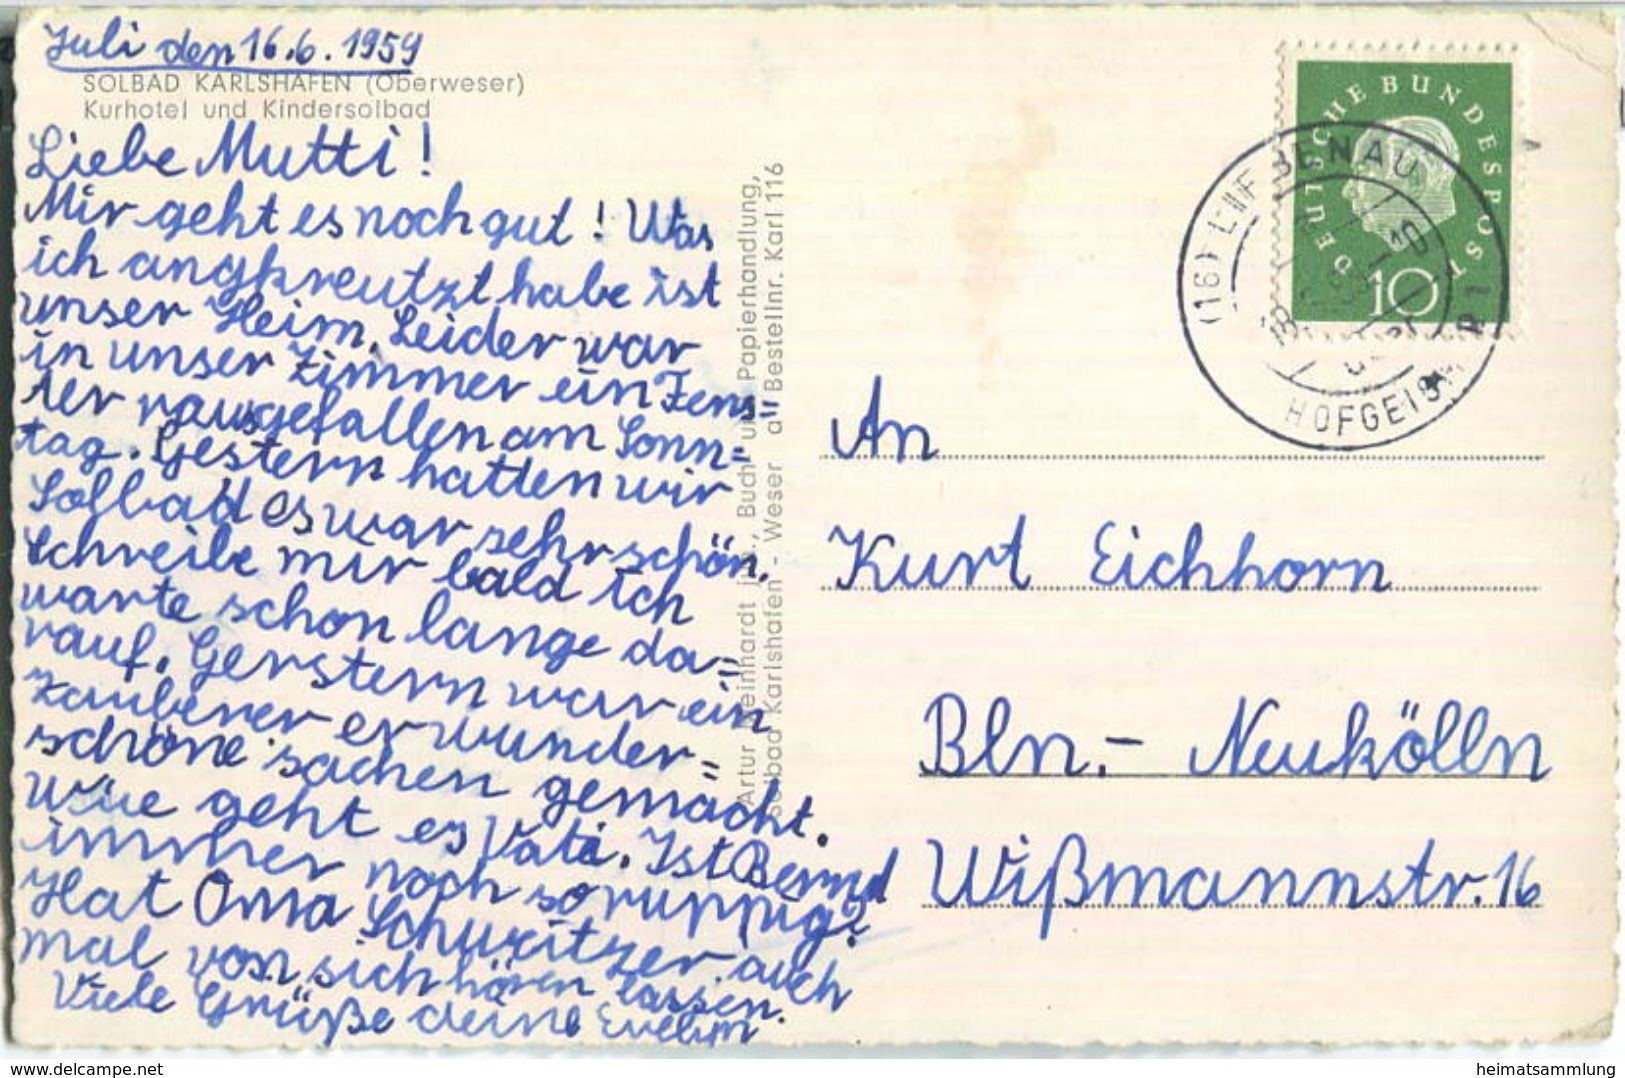 Juli den 16.6.1959
SOLBAD KARLSHAFEN (Oberweser)
Kurhotel und Kindersolbad
Liebe Mutti!
Mir geht es noch gut! Was
ich angkreutzt habe ist
unser Heim. Leider war
in unser Zimmer ein Fens=
ter rausgefallen am Sonn=
tag. Gestern hatten wir
Solbad es war sehr schön.
Schreibe mir bald ich
warte schon lange da=
rauf. Gerstern war ein
Zauberer er wunder=
schöne sachen gemacht.
wie geht es Vati. Ist Bernd
immer noch so ruppig?
Hat Oma Schweitzer auch
mal von sich hören lassen.
Viele Grüße deine Evelyn
Artur Meinhardt jun., Buch- u. Papierhandlung,
Solbad Karlshafen - Weser a Bestellnr. Karl 116
DEUTSCHE BUNDESPOST
10
(16)
HOFGEISMAR
An
Kurt Eichhorn
Bln.- Neukölln
Wißmannstr. 16
www.delcampe.net
heimatsammlung